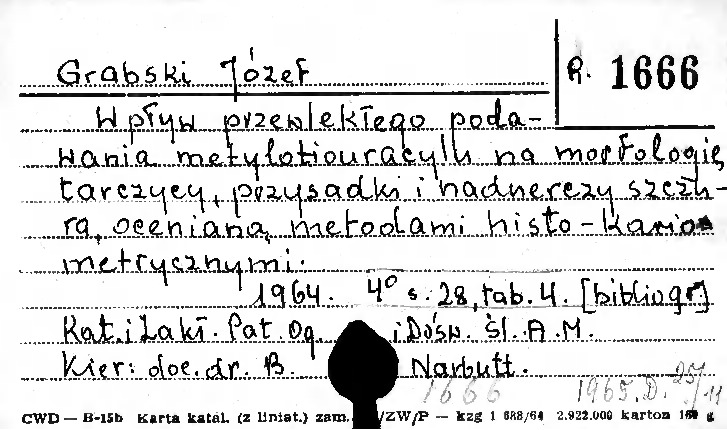 Grabski Józef
R. 1666
Wpływ przewlekłego poda-
wania metylotiouracylu na morfologię
tarczycy, przysadki i nadnerczy szczu-
ra, oceniana metodami histo-kario-
metrycznymi.
1964. 4° s. 28, tab. 4. [bibliogr]
Kat. i Zakł. Pat. Og. i Dośw. Śl. A. M.
Kier: doc. dr. B. Narbutt.
1666 1965.D. 25/11
CWD — B-15b Karta katal. (z liniat.) zam. /ZW/P — kzg 1 688/64 2.922.000 karton g